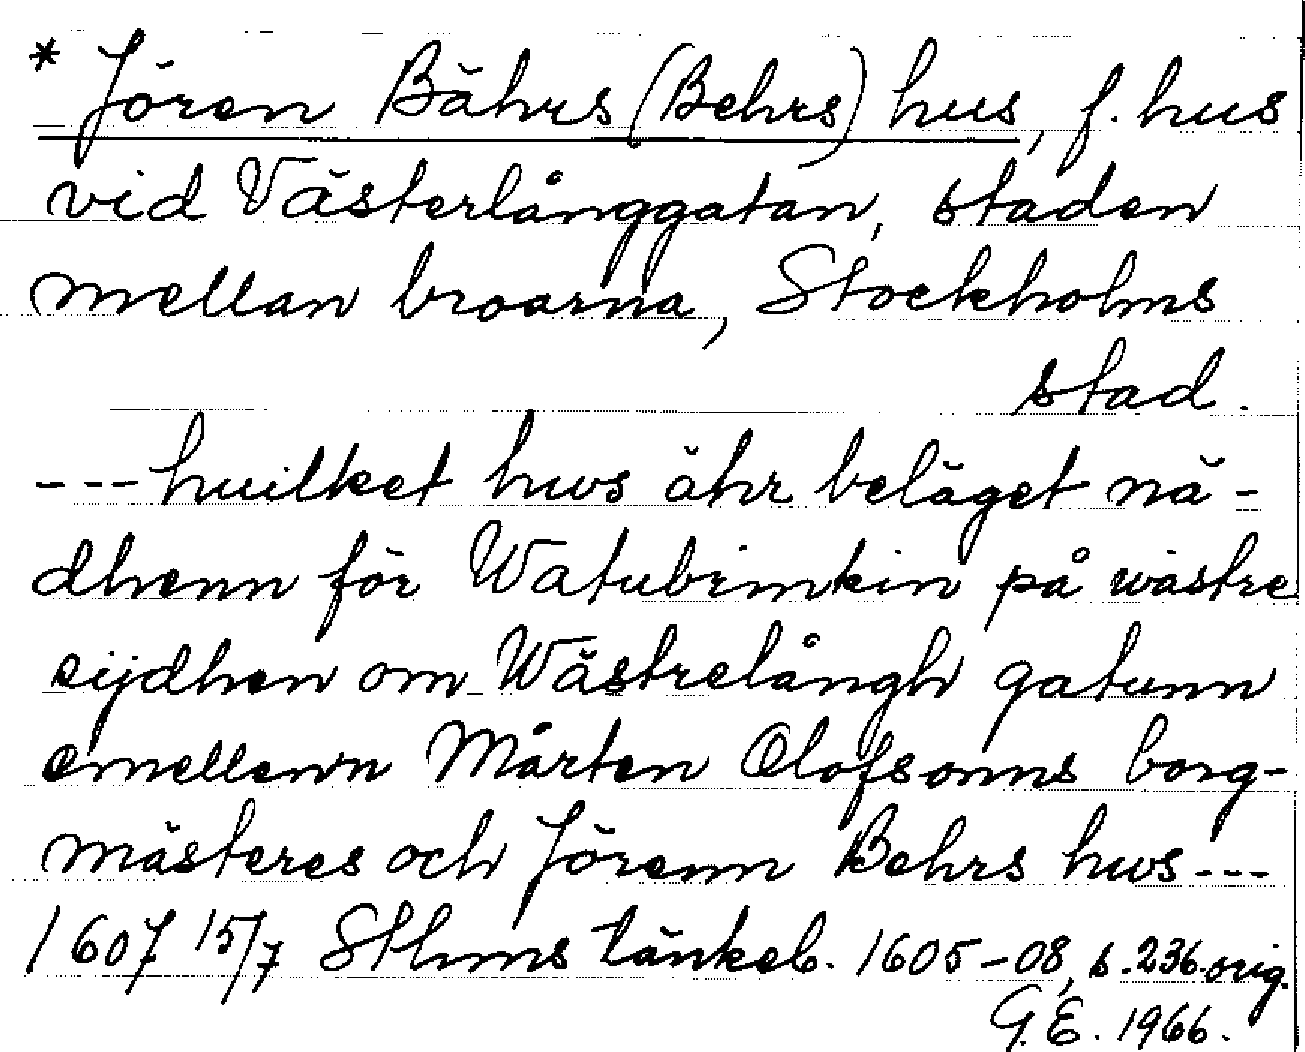 * Jören Bährs (Behrs) hus, f. hus
vid Västerlånggatan, staden
mellan broarna, Stockholms
stad.
---huilket hws ähr beläget nä-
dhenn för Watubrinkin på wästre
sijdhen om Wästrelångh gatunn
emellenn Mårten Olofsonns borg-
mästeres och Jörenn Behrs hws---
1607 15/7 Sthms tänkeb. 1605-08, s. 236 orig.
G.E. 1966.